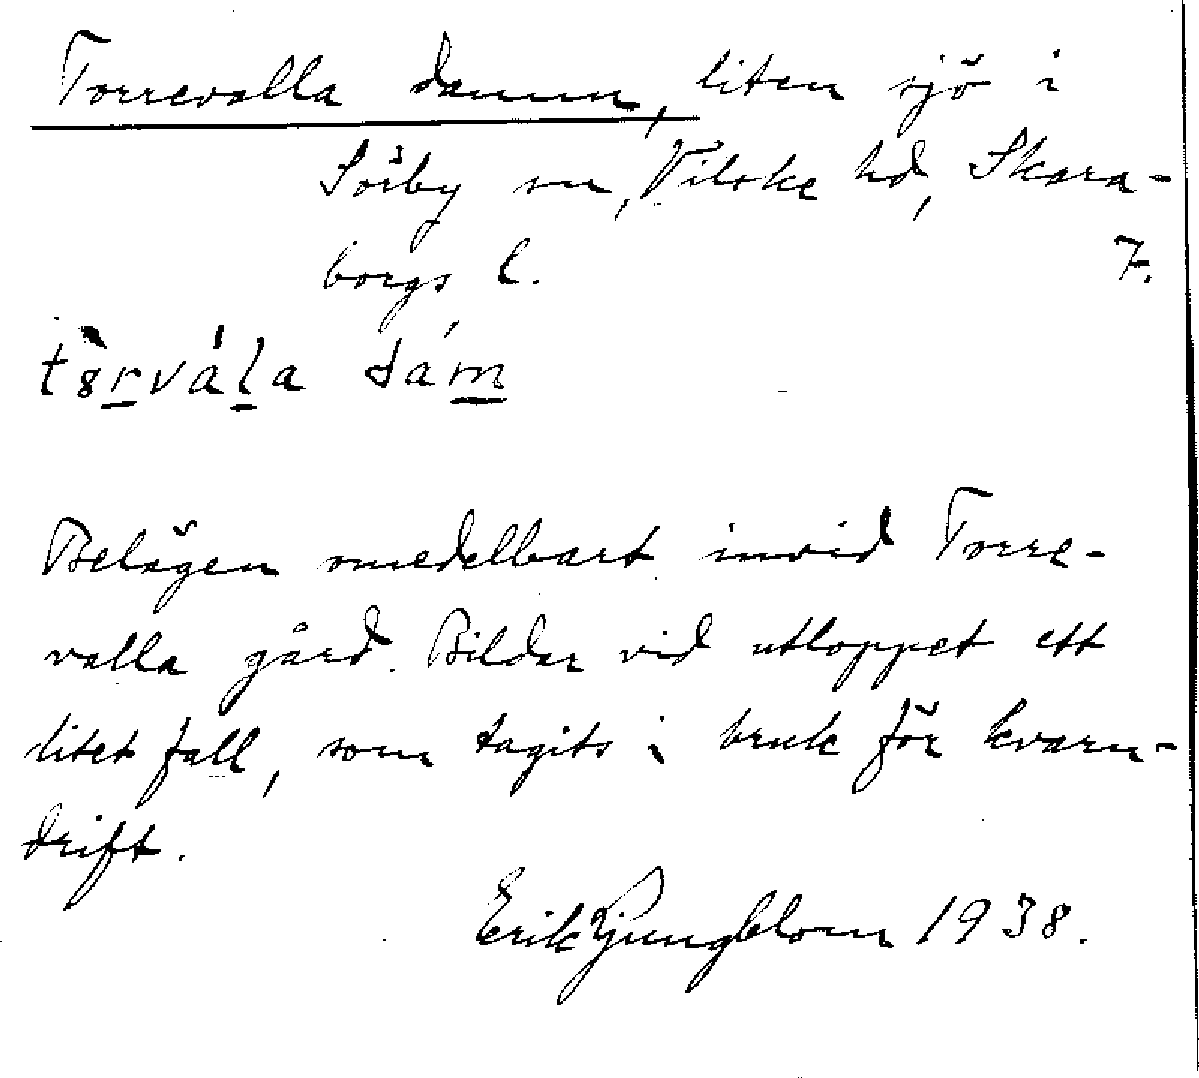 Torrevalla damm, liten sjö i
Sörby sn, Vilske hd, Skara-
borgs l. 7.
dam
Belägen omedelbart invid Torre-
valla gård. Bildar vid utloppet ett
litet fall, som tagits i bruk för kvarn-
drift.
Erik Ljungblom 1938.